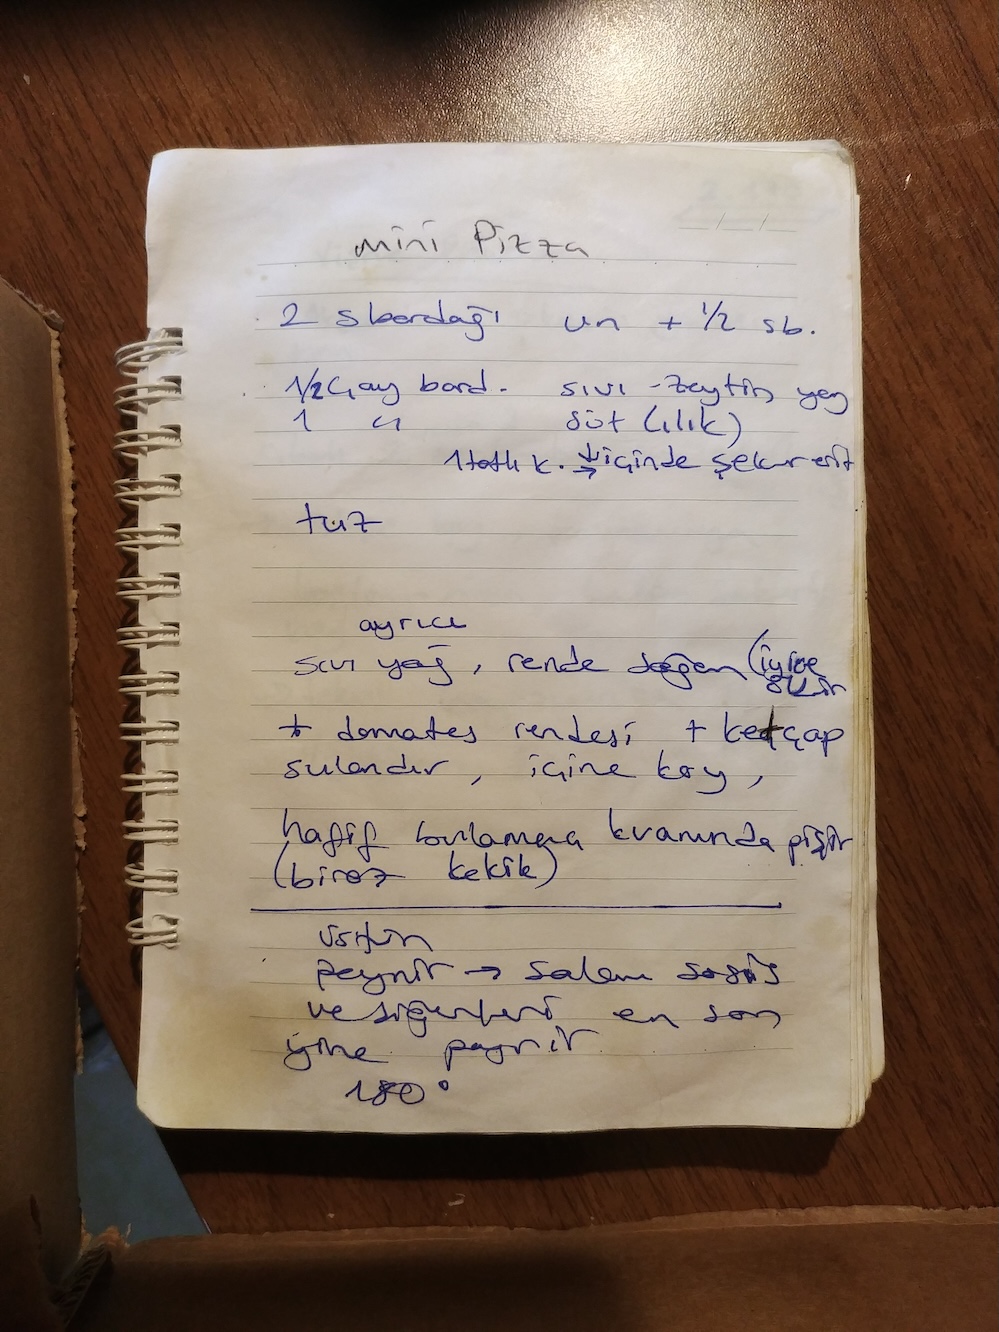 mini Pizza
2 sbardağı un + 1/2 sb.
1/2 Çay bard. sıvı - zeytin yağ
1 " süt (ılık)
1 tatlı k. → içinde şeker erit
tuz
ayrıca
sıvı yağ, rende soğan (iyice
+ domates rendesi + ketçap
sulandır, içine koy,
hafif bulamaca kıvamında pişir
(biraz kekik)
üstün
peynir → salam sosis
ve diğerleri en son
yine peynir
180°